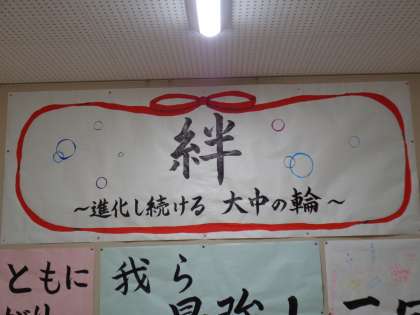 絆
～進化し続ける 大中の輪～
ともに
我ら
最強